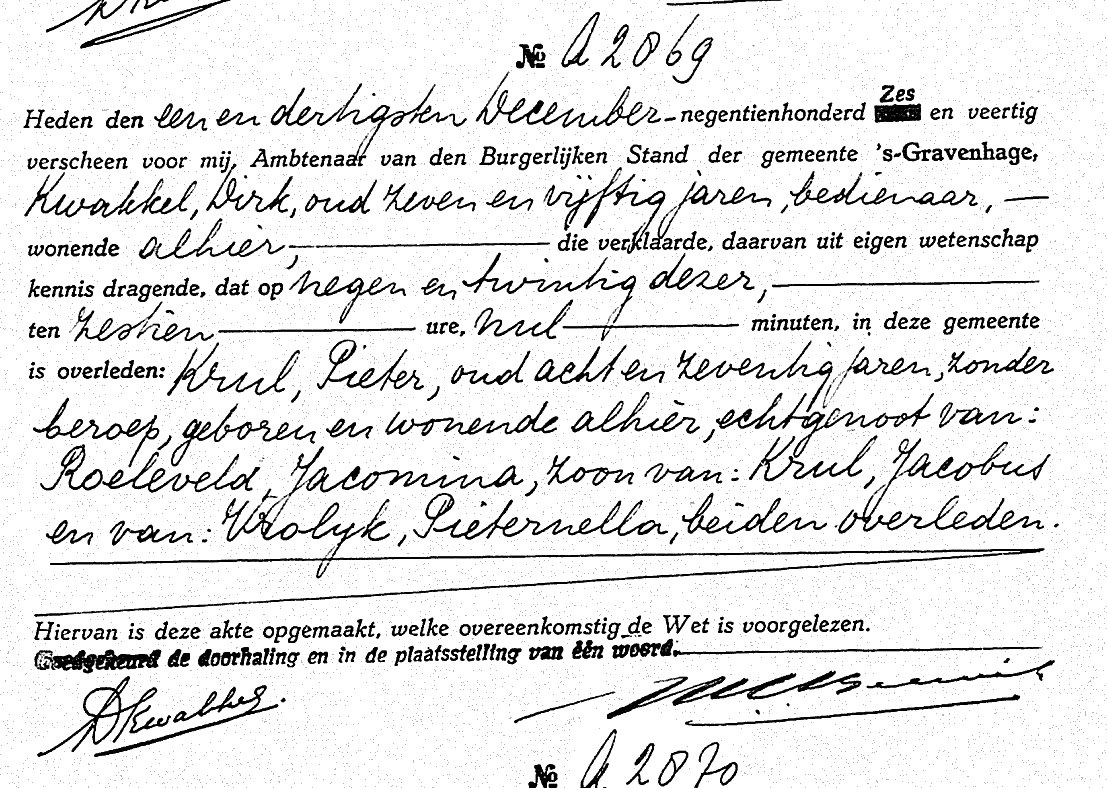 № A 2869
Zes
Heden den een en dertigsten December - negentienhonderd en veertig
verscheen voor mij, Ambtenaar van den Burgerlijken Stand der gemeente 's-Gravenhage,
Kwakkel, Dirk, oud zeven en vijftig jaren, bedienaar, —
wonende alhier, — die verklaarde, daarvan uit eigen wetenschap
kennis dragende, dat op negen en twintig dezer, —
ten zestien — ure, nul — minuten, in deze gemeente
is overleden: Krul, Pieter, oud acht en zeventig jaren, zonder
beroep, geboren en wonende alhier, echtgenoot van:
Roeleveld, Jacomina, zoon van: Krul, Jacobus
en van: Vrolyk, Pieternella, beiden overleden.
Hiervan is deze akte opgemaakt, welke overeenkomstig de Wet is voorgelezen.
Goedgekeurd de doorhaling en in de plaatsstelling van één woord.
DKwakkel.
№ A 2870